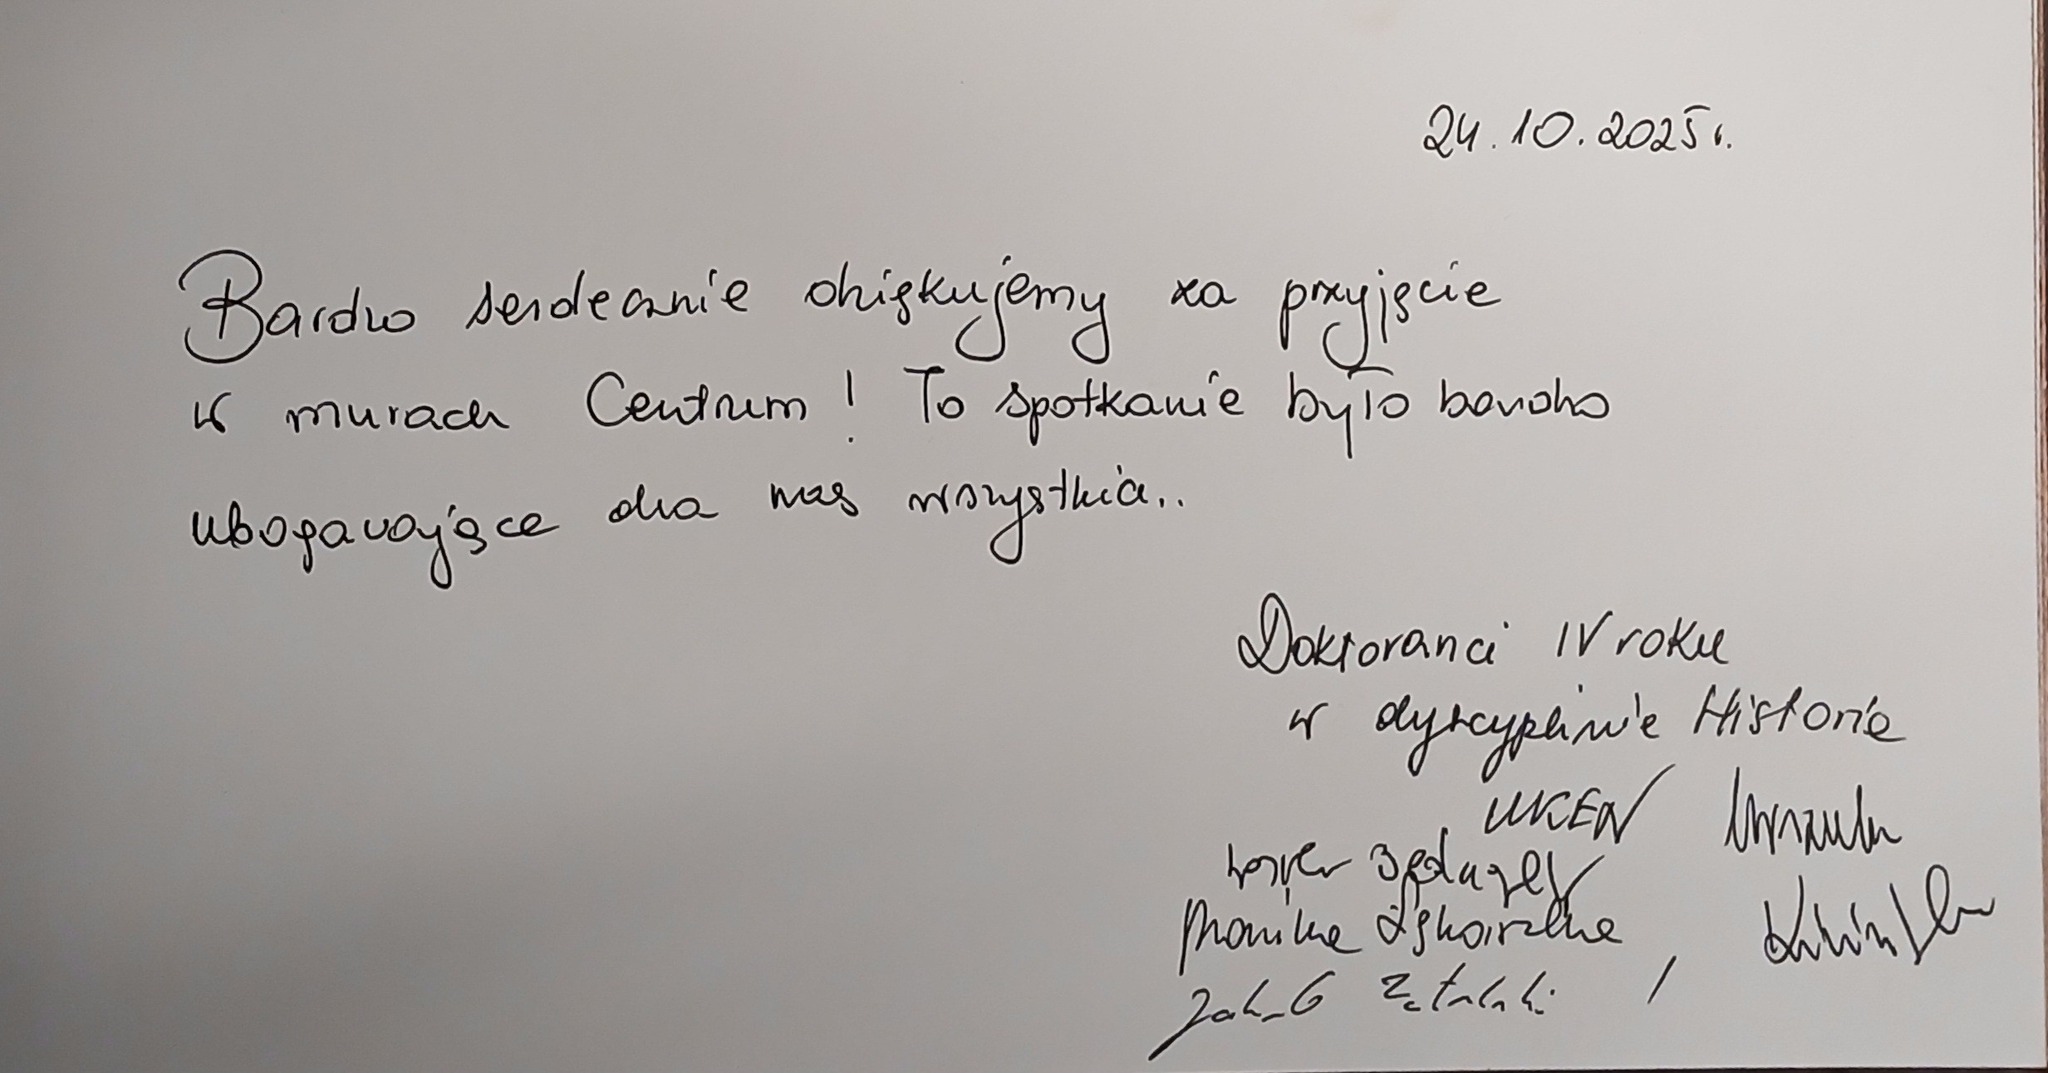 24.10.2025 r.
Bardzo serdecznie dziękujemy za przyjęcie
w murach Centrum! To spotkanie było bardzo
ubogacające dla nas wszystkich..
Doktoranci IV roku
w dyscyplinie Historia
UKEN Urszula
Kacper
Monika
Jakub